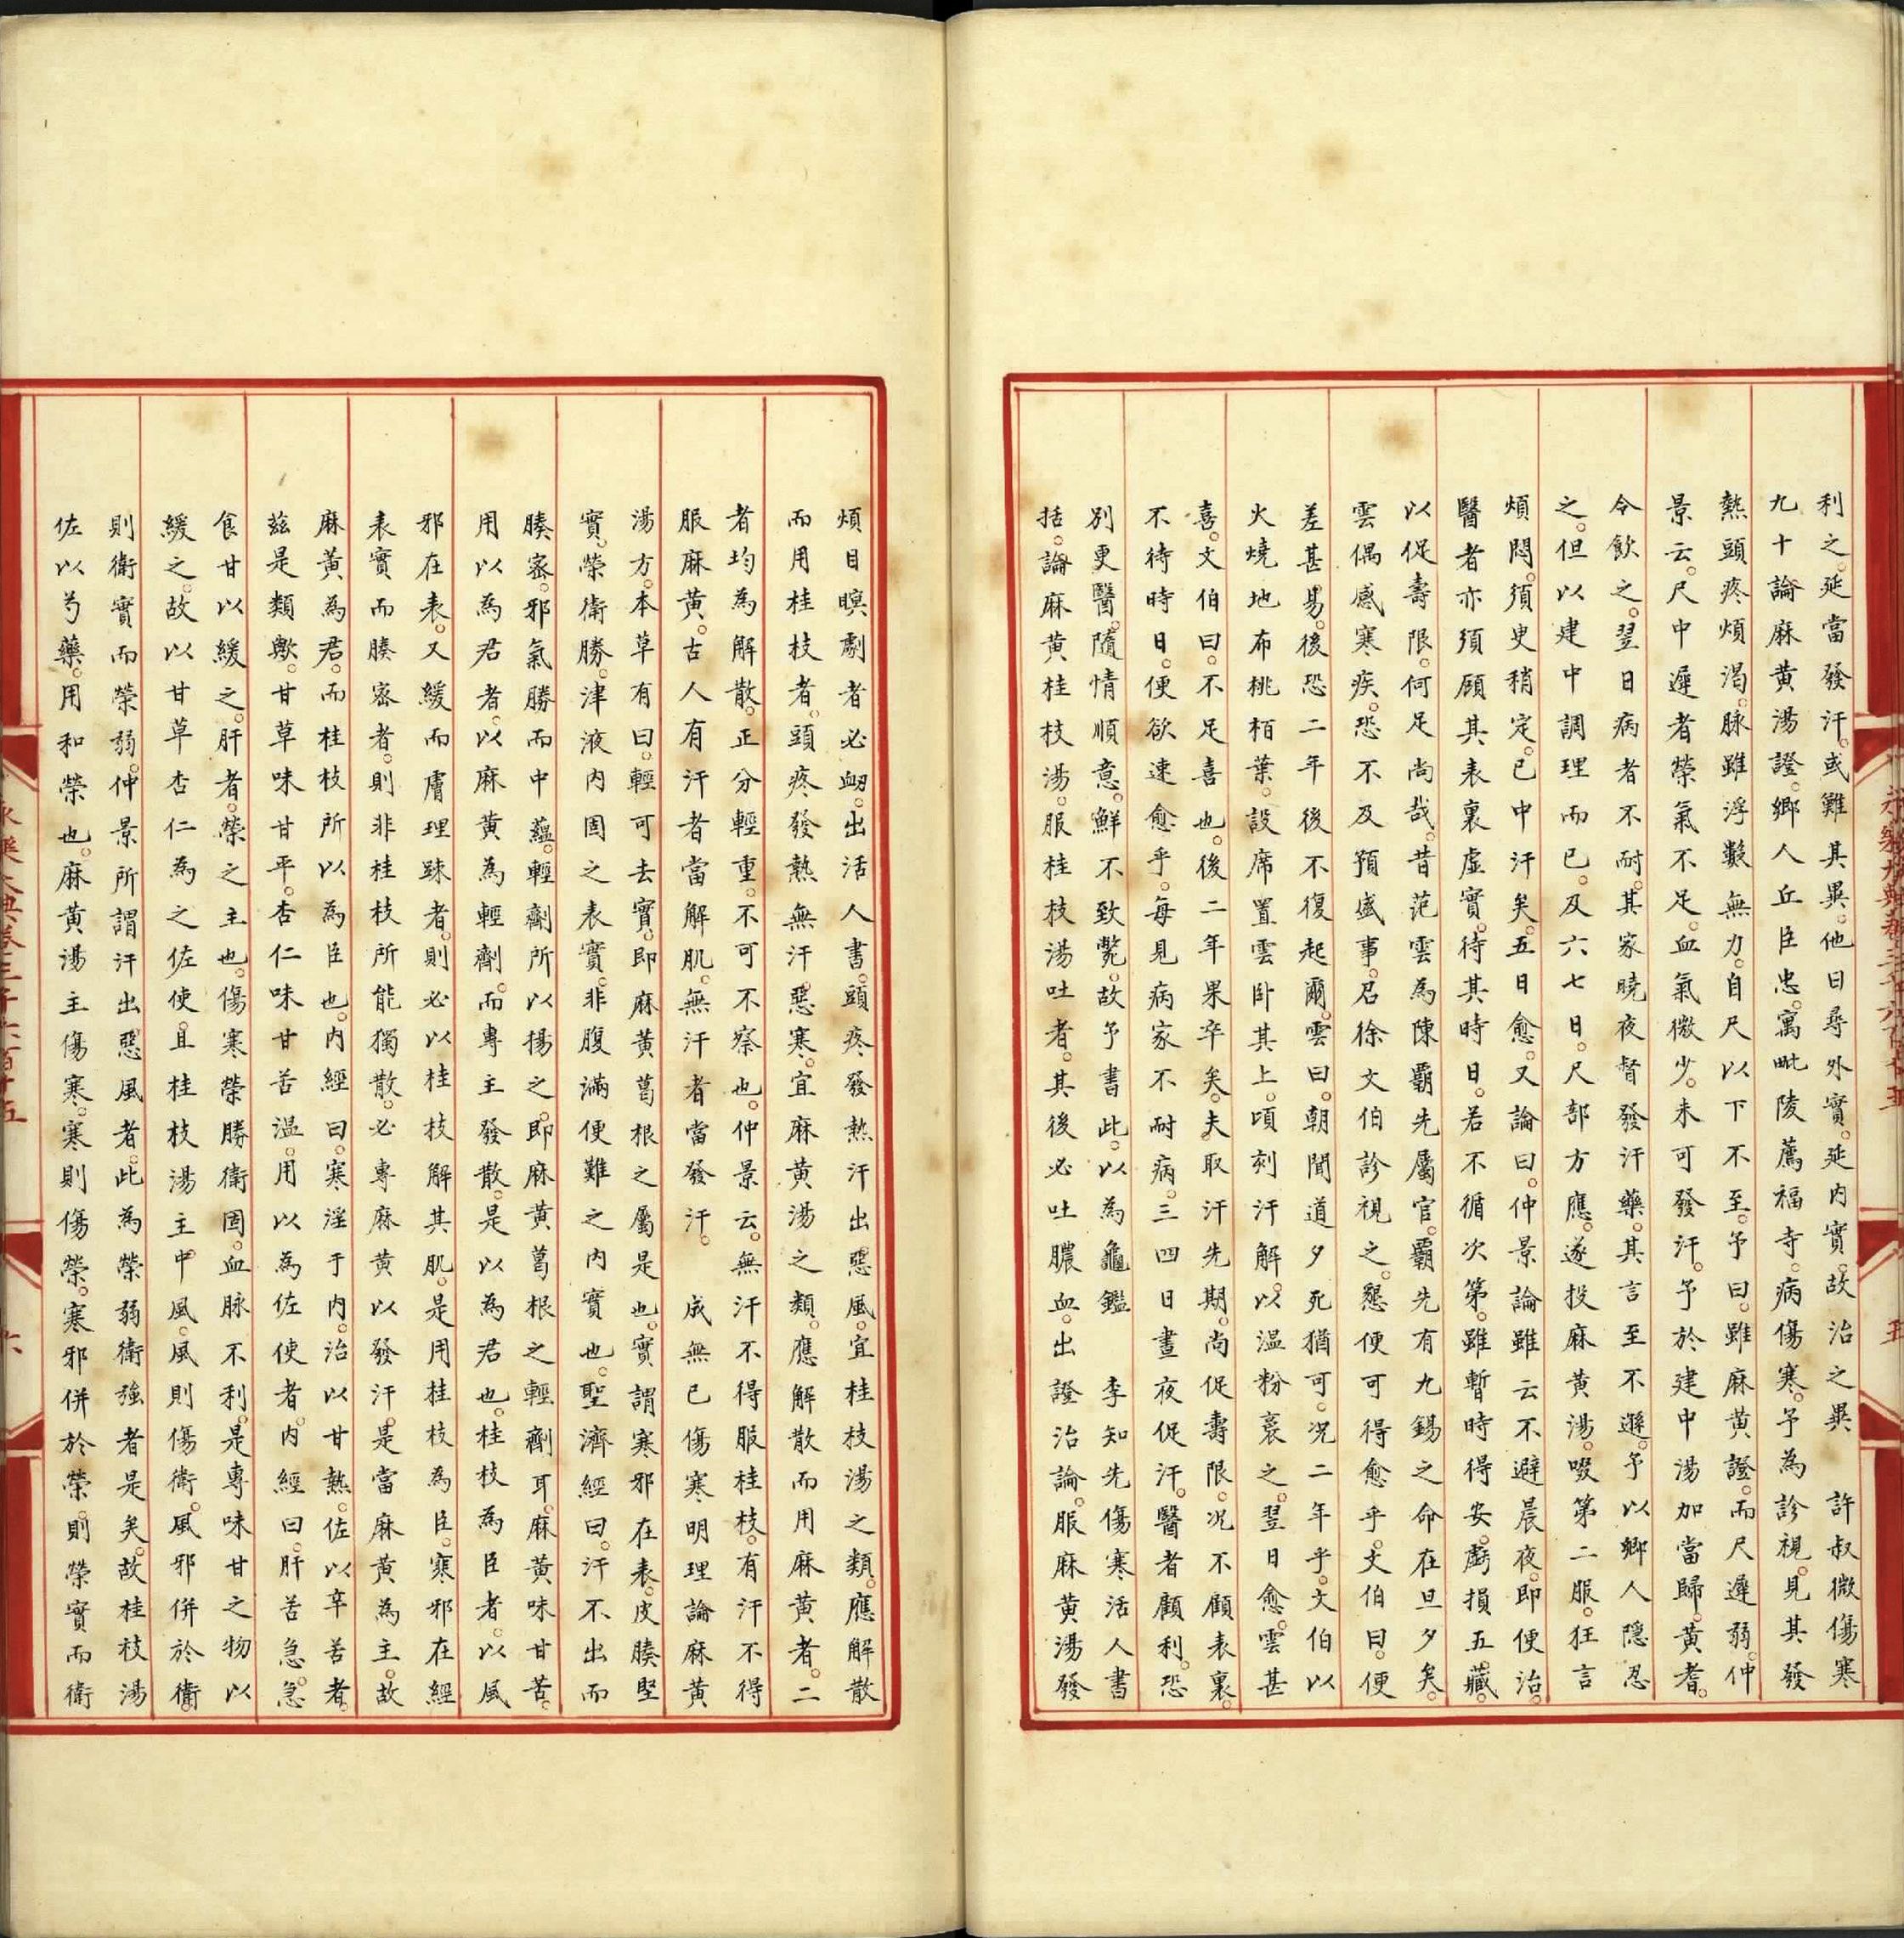 利之。延當發汗。或難其異。他日尋外實。延内實。故治之異　許叔微傷寒
九十論麻黄湯證。鄉人丘臣忠。寓毗陵薦福寺。病傷寒。予為診視。見其發
熱頭疼煩渴。脉雖浮數無力。自尺以下不至。予曰。雖麻黄證。而尺遲弱。仲
景云。尺中遲者榮氣不足。血氣微少。未可發汗。予於建中湯加當歸。黄耆。
令飲之。翌日病者不耐。其家曉夜督發汗藥。其言至不遜。予以鄉人隱忍
之。但以建中調理而已。及六七日。尺部方應。遂投麻黄湯。啜第二服。狂言
煩悶。須臾稍定。已中汗矣。五日愈。又論曰。仲景論雖云不避晨夜。即便治。
醫者亦須顧其表裏虛實。待其時日。若不循次第。雖暫時得安。虧損五藏。
以促壽限。何足尚哉。昔范雲為陳霸先屬官。霸先有九錫之命在旦夕矣。
雲偶感寒疾。恐不及預盛事。召徐文伯診視之。懇便可得愈乎。文伯曰。便
差甚易。後恐二年後不復起爾。雲曰。朝聞道夕死猶可。况二年乎。文伯以
火燒地布桃栢葉。設席置雲卧其上。頃刻汗解。以溫粉裛之。翌日愈。雲甚
喜。文伯曰。不足喜也。後二年果卒矣。夫取汗先期。尚促壽限。况不顧表裏
不待時日。便欲速愈乎。每見病家不耐病。三四日晝夜促汗。醫者顧利。恐
别更醫。隨情順意。鮮不致斃。故予書此。以為龜鑑　李知先傷寒活人書
括。論麻黄桂枝湯。服桂枝湯吐者。其後必吐膿血。出證治論。服麻黄湯發
煩目瞑劇者必衂。出活人書。頭疼發熱汗出惡風。宜桂枝湯之類。應解散
而用桂枝者。頭疼發熱無汗惡寒。宜麻黄湯之類。應解散而用麻黄者。二
者均為解散。正分輕重。不可不察也。仲景云。無汗不得服桂枝。有汗不得
服麻黄。古人有汗者當解肌。無汗者當發汗。　成無已傷寒明理論麻黄
湯方。本草有曰。輕可去實。即麻黄葛根之屬是也。實謂寒邪在表。皮腠堅
實。榮衛勝。津液内固之表實。非腹滿便難之内實也。聖濟經曰。汗不出而
腠密。邪氣勝而中蘊。輕劑所以揚之。即麻黄葛根之輕劑耳。麻黄味甘苦。
用以為君者。以麻黄為輕劑。而專主發散。是以為君也。桂枝為臣者。以風
邪在表。又緩而膚理踈者。則必以桂枝解其肌。是用桂枝為臣。寒邪在經
表實而腠密者。則非桂枝所能獨散。必專麻黄以發汗。是當麻黄為主。故
麻黄為君。而桂枝所以為臣也。内經曰。寒淫于内。治以甘熱。佐以辛苦者。
兹是類歟。甘草味甘平。杏仁味甘苦溫。用以為佐使者。内經曰。肝苦急。急
食甘以緩之。肝者。榮之主也。傷寒榮勝衛固。血脉不利。是專味甘之物以
緩之。故以甘草杏仁為之佐使。且桂枝湯主中風。風則傷衛。風邪併於衛。
則衛實而榮弱。仲景所謂汗出惡風者。此為榮弱衛強者是矣。故桂枝湯
佐以芍藥。用和榮也。麻黄湯主傷寒。寒則傷榮。寒邪併於榮。則榮實而衛